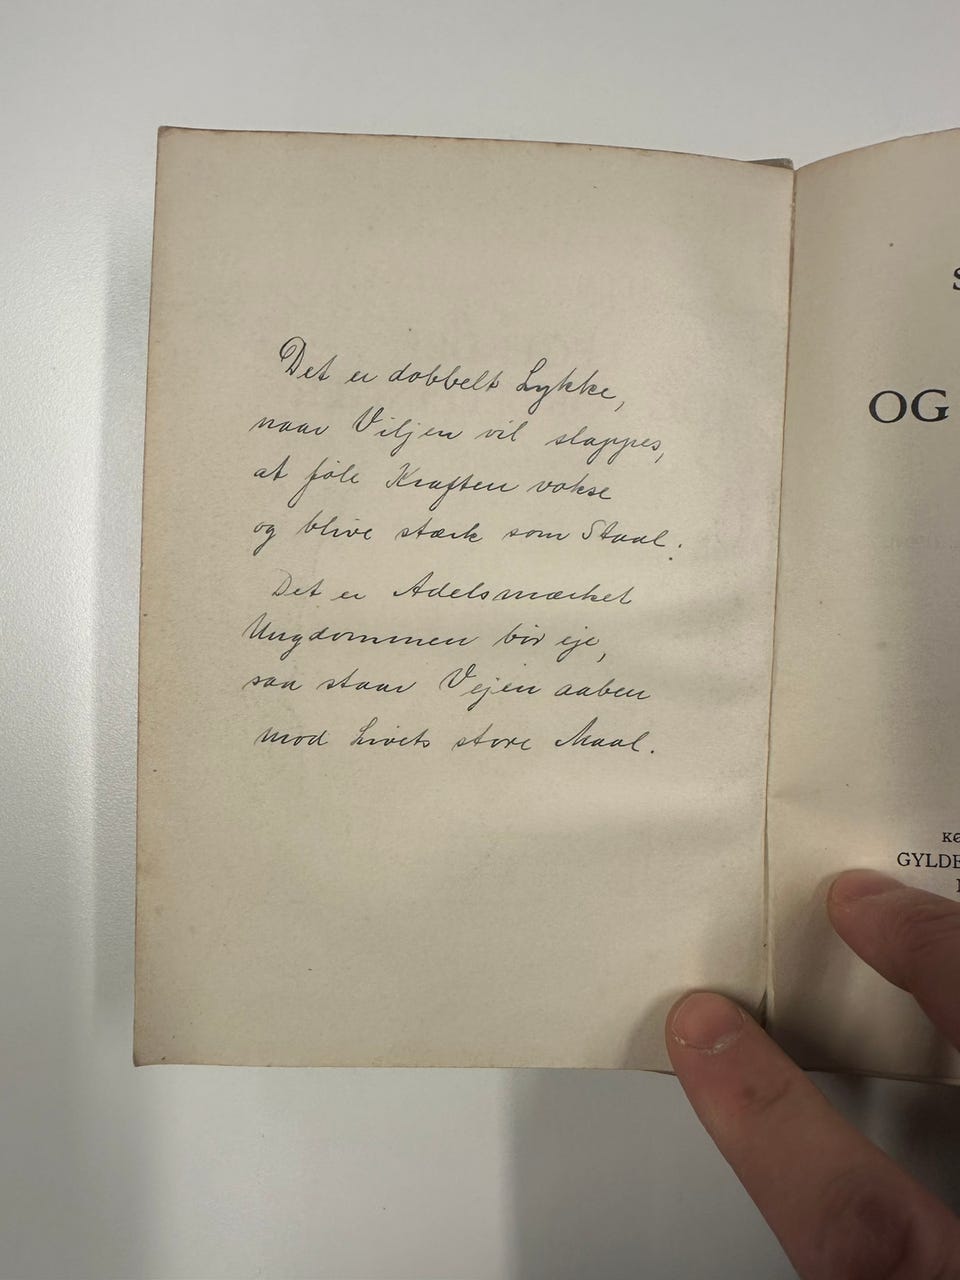 Det er dobbelt Lykke,
naar Viljen vil slappes,
at føle Kraften vokse
og blive stærk som Staal.
Det er Adelsmærket
Ungdommen bør eje,
saa staar Vejen aaben
mod Livets store Maal.
S
OG
KØ
GYLDE